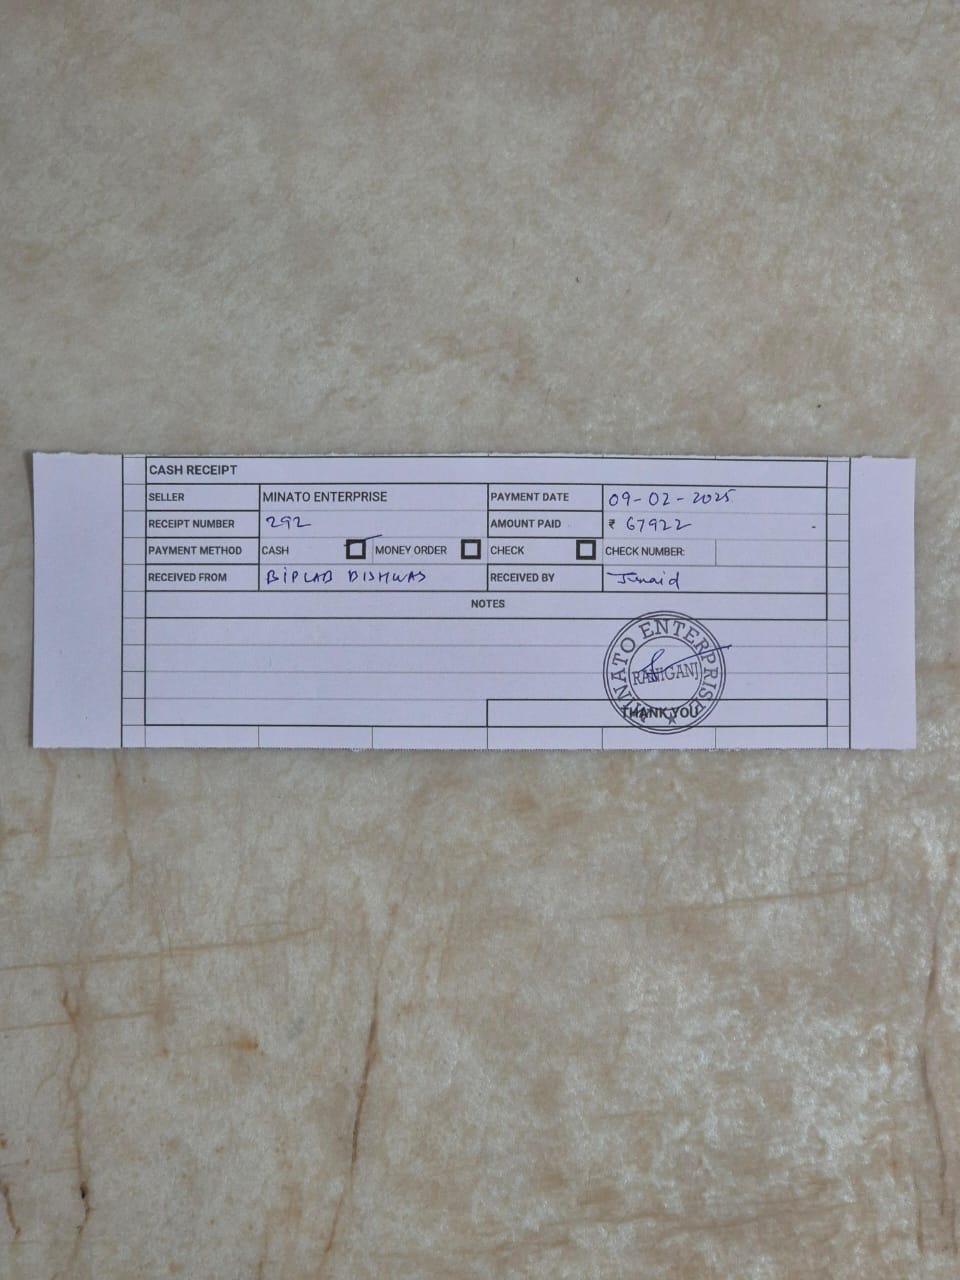 CASH RECEIPT
SELLER MINATO ENTERPRISE PAYMENT DATE 09-02-2025
RECEIPT NUMBER 292 AMOUNT PAID ₹ 67922
PAYMENT METHOD CASH MONEY ORDER CHECK CHECK NUMBER:
RECEIVED FROM BIPLAB BISHWAS RECEIVED BY Junaid
NOTES
MINATO ENTERPRISE
RANIGANJ
THANK YOU